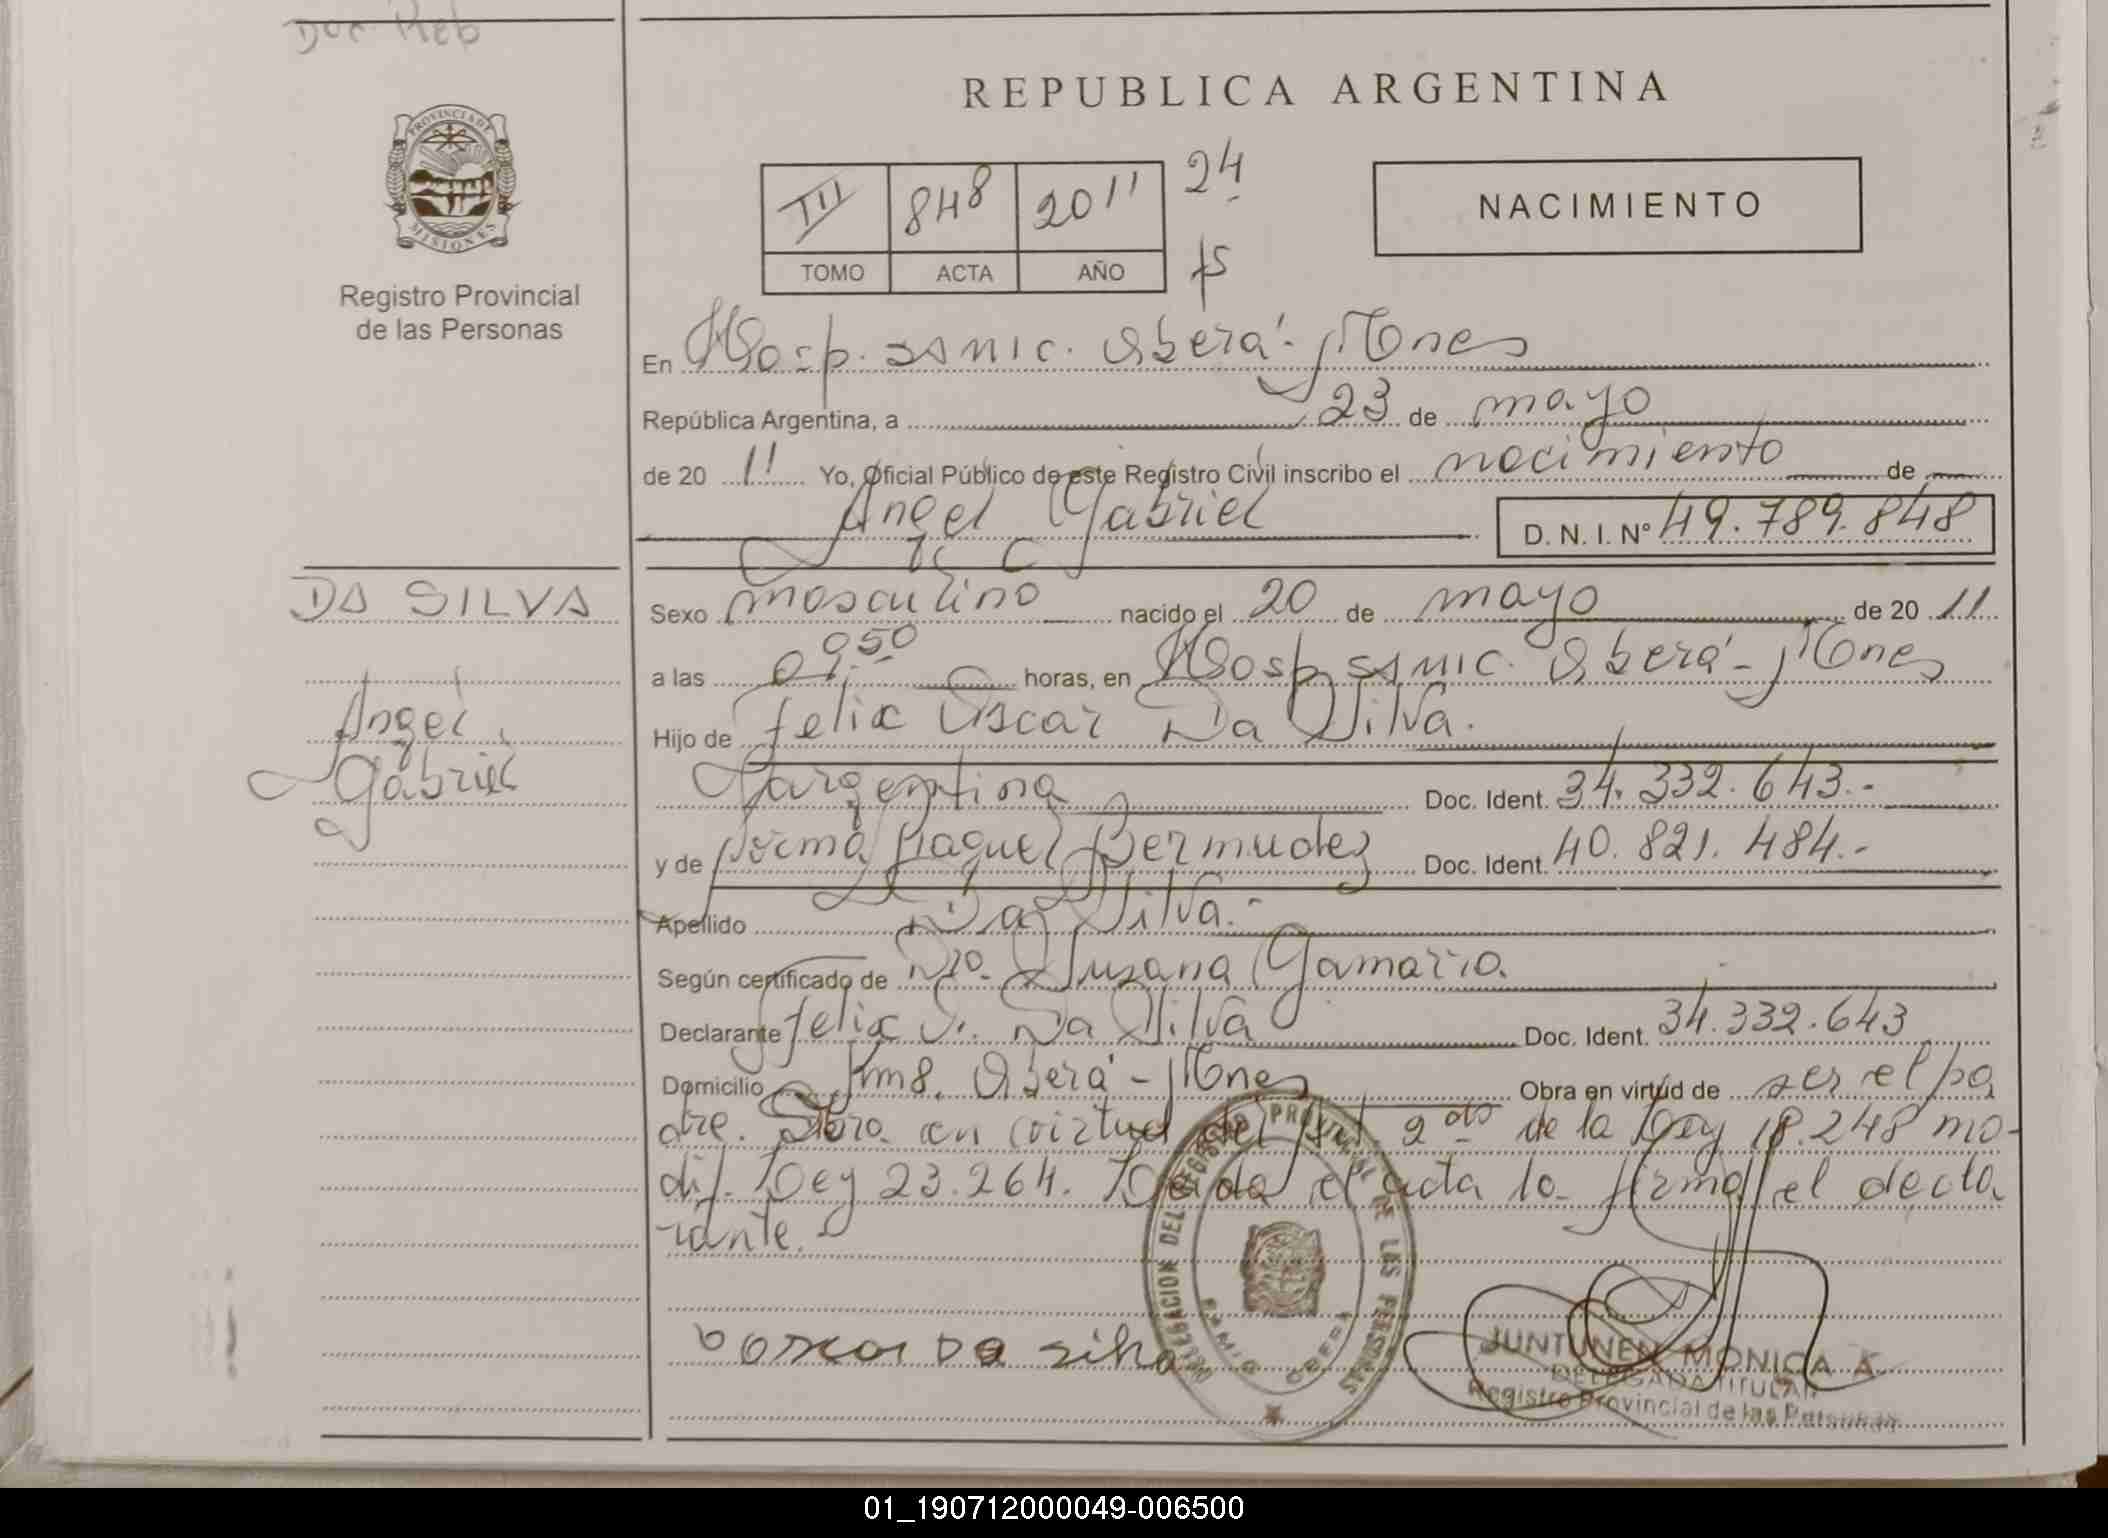 Doc. Reb
REPUBLICA ARGENTINA
PROVINCIA DE
MISIONES
Registro Provincial
de las Personas
III 848 2011 24
TOMO ACTA AÑO fs
NACIMIENTO
En Hosp. SAMIC. Oberá - Mnes
República Argentina, a 23 de mayo
de 20 11 Yo, Oficial Público de este Registro Civil inscribo el nacimiento de
Angel Gabriel D. N. I. Nº 49.789.848
DA SILVA
Angel
Gabriel
Sexo masculino nacido el 20 de mayo de 20 11
a las 09.50 horas, en Hosp. SAMIC. Oberá - Mnes
Hijo de Felix Oscar Da Silva.
argentina Doc. Ident. 34.332.643.-
y de Norma Raquel Bermudez Doc. Ident. 40.821.484.-
Apellido Da Silva.-
Según certificado de Dra. Susana Gamarra.
Declarante Felix O. Da Silva Doc. Ident. 34.332.643
Domicilio Km 8. Oberá - Mnes Obra en virtud de ser el pa
dre. en virtud del 2do de la Ley 18.248 mo-
dif. Ley 23.264. Leída el acta la firma el decla
rante.
oscar Da silva
DELEGACION DEL REGISTRO PROVINCIAL DE LAS PERSONAS
JUNTUNEN MONICA A.
DELEGADA TITULAR
Registro Provincial de las Personas
01_190712000049-006500